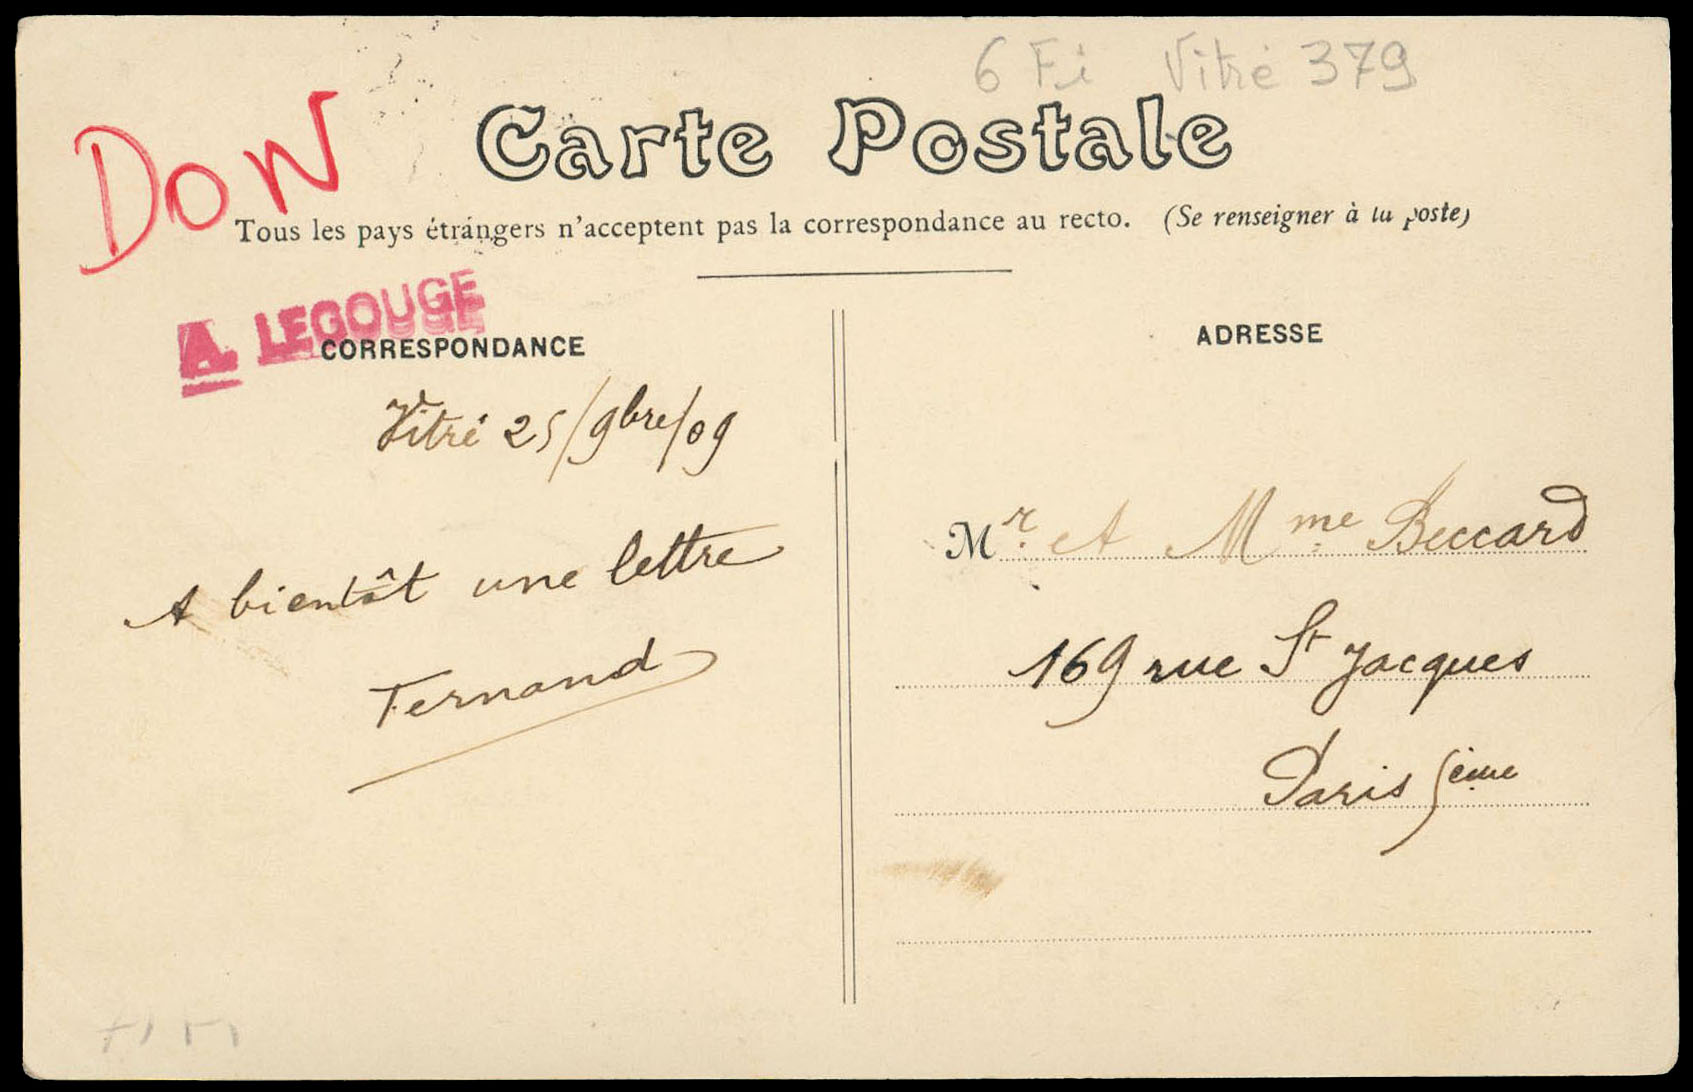 6 Fi Vitré 379
DON
Carte Postale
Tous les pays étrangers n'acceptent pas la correspondance au recto. (Se renseigner à la poste)
A. LEGOUGE
CORRESPONDANCE
Vitré 25/9bre/09
A bientôt une lettre
Fernand
ADRESSE
Mr. et Mme Beccard
169 rue St Jacques
Paris 5ème